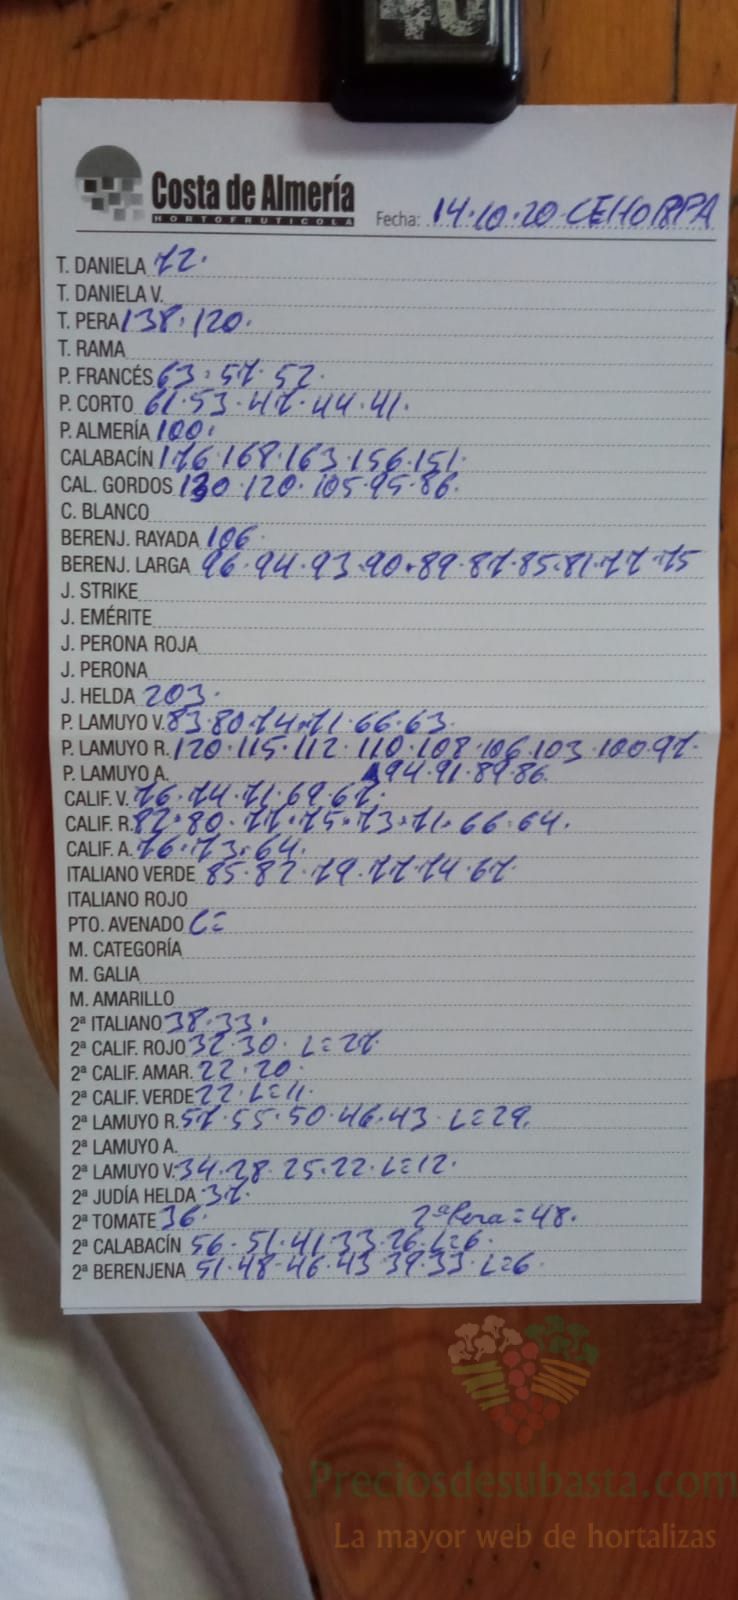 Costa de Almería
HORTOFRUTICOLA
Fecha: 14.10.20 CEHORPA
T. DANIELA 72.
T. DANIELA V.
T. PERA 138. 120.
T. RAMA
P. FRANCÉS 63. 57. 52.
P. CORTO 61. 53. 47. 44. 41.
P. ALMERÍA 100.
CALABACÍN 176. 168. 163. 156. 151.
CAL. GORDOS 130 120. 105. 95. 86.
C. BLANCO
BERENJ. RAYADA 106.
BERENJ. LARGA 96. 94. 93. 90. 89. 87. 85. 81. 77. 75
J. STRIKE
J. EMÉRITE
J. PERONA ROJA
J. PERONA
J. HELDA 203.
P. LAMUYO V. 83. 80. 74. 71. 66. 63.
P. LAMUYO R. 120. 115. 112. 110. 108. 106. 103. 100. 97.
P. LAMUYO A. 94. 91. 89. 86.
CALIF. V. 76. 74. 71. 69. 67.
CALIF. R. 82. 80. 77. 75. 73. 71. 66. 64.
CALIF. A. 76. 73. 64.
ITALIANO VERDE 85. 82. 79. 77. 74. 67.
ITALIANO ROJO
PTO. AVENADO C=
M. CATEGORÍA
M. GALIA
M. AMARILLO
2ª ITALIANO 38. 33.
2ª CALIF. ROJO 32. 30. L=27.
2ª CALIF. AMAR. 22. 20.
2ª CALIF. VERDE 22. L=11.
2ª LAMUYO R. 57. 55. 50. 46. 43. L=29.
2ª LAMUYO A.
2ª LAMUYO V. 34. 28. 25. 22. L=12.
2ª JUDÍA HELDA 37.
2ª TOMATE 36. 2ª Pera = 48.
2ª CALABACÍN 56. 51. 41. 33. 26. L=6.
2ª BERENJENA 51. 48. 46. 43. 39. 33. L=6.
Preciosdesubasta.com
La mayor web de hortalizas